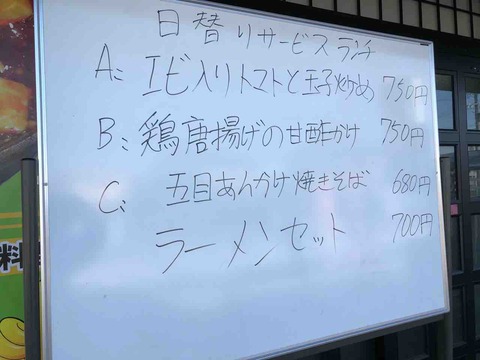 日替りサービスランチ
A: エビ入りトマトと玉子炒め 750円
B: 鶏唐揚げの甘酢かけ 750円
C: 五目あんかけ焼きそば 680円
ラーメンセット 700円
料